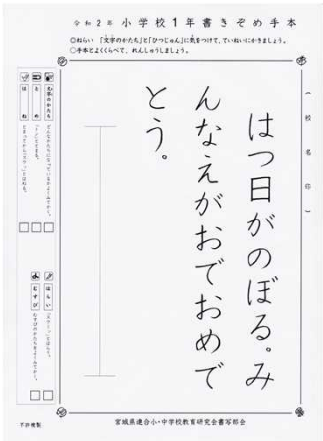 令和2年 小学校1年書きぞめ手本
◎ねらい 「文字のかたち」と「ひつじゅん」に気をつけて、ていねいにかきましょう。
○手本とよくくらべて、れんしゅうしましょう。
(校名印)
はつ日がのぼる。み
んなえがおでおめで
とう。
文字のかたち
とめ
はね
はらい
むすび
不許複製
宮城県連合小・中学校教育研究会書写部会